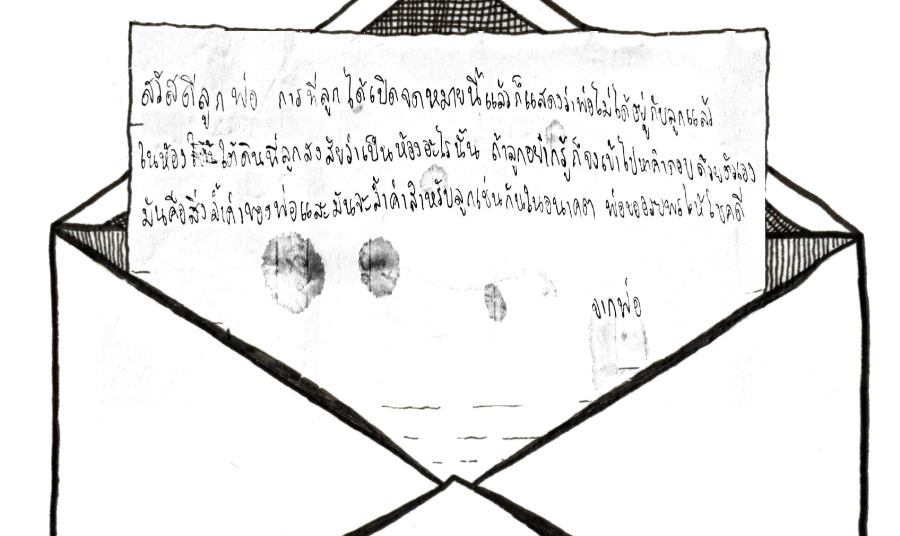 สวัสดีลูกพ่อ การที่ลูกได้เปิดจดหมายนี้แล้วก็แสดงว่าพ่อไม่ได้อยู่กับลูกแล้ว
ในห้องใต้ดินที่ลูกสงสัยว่าเป็นห้องอะไรนั้น ถ้าลูกอยากรู้ก็จงเข้าไปหาคำตอบด้วยตัวเอง
มันคือสิ่งล้ำค่าของพ่อและมันจะล้ำค่าสำหรับลูกเช่นกันในอนาคต พ่อขออวยพรให้โชคดี
จากพ่อ